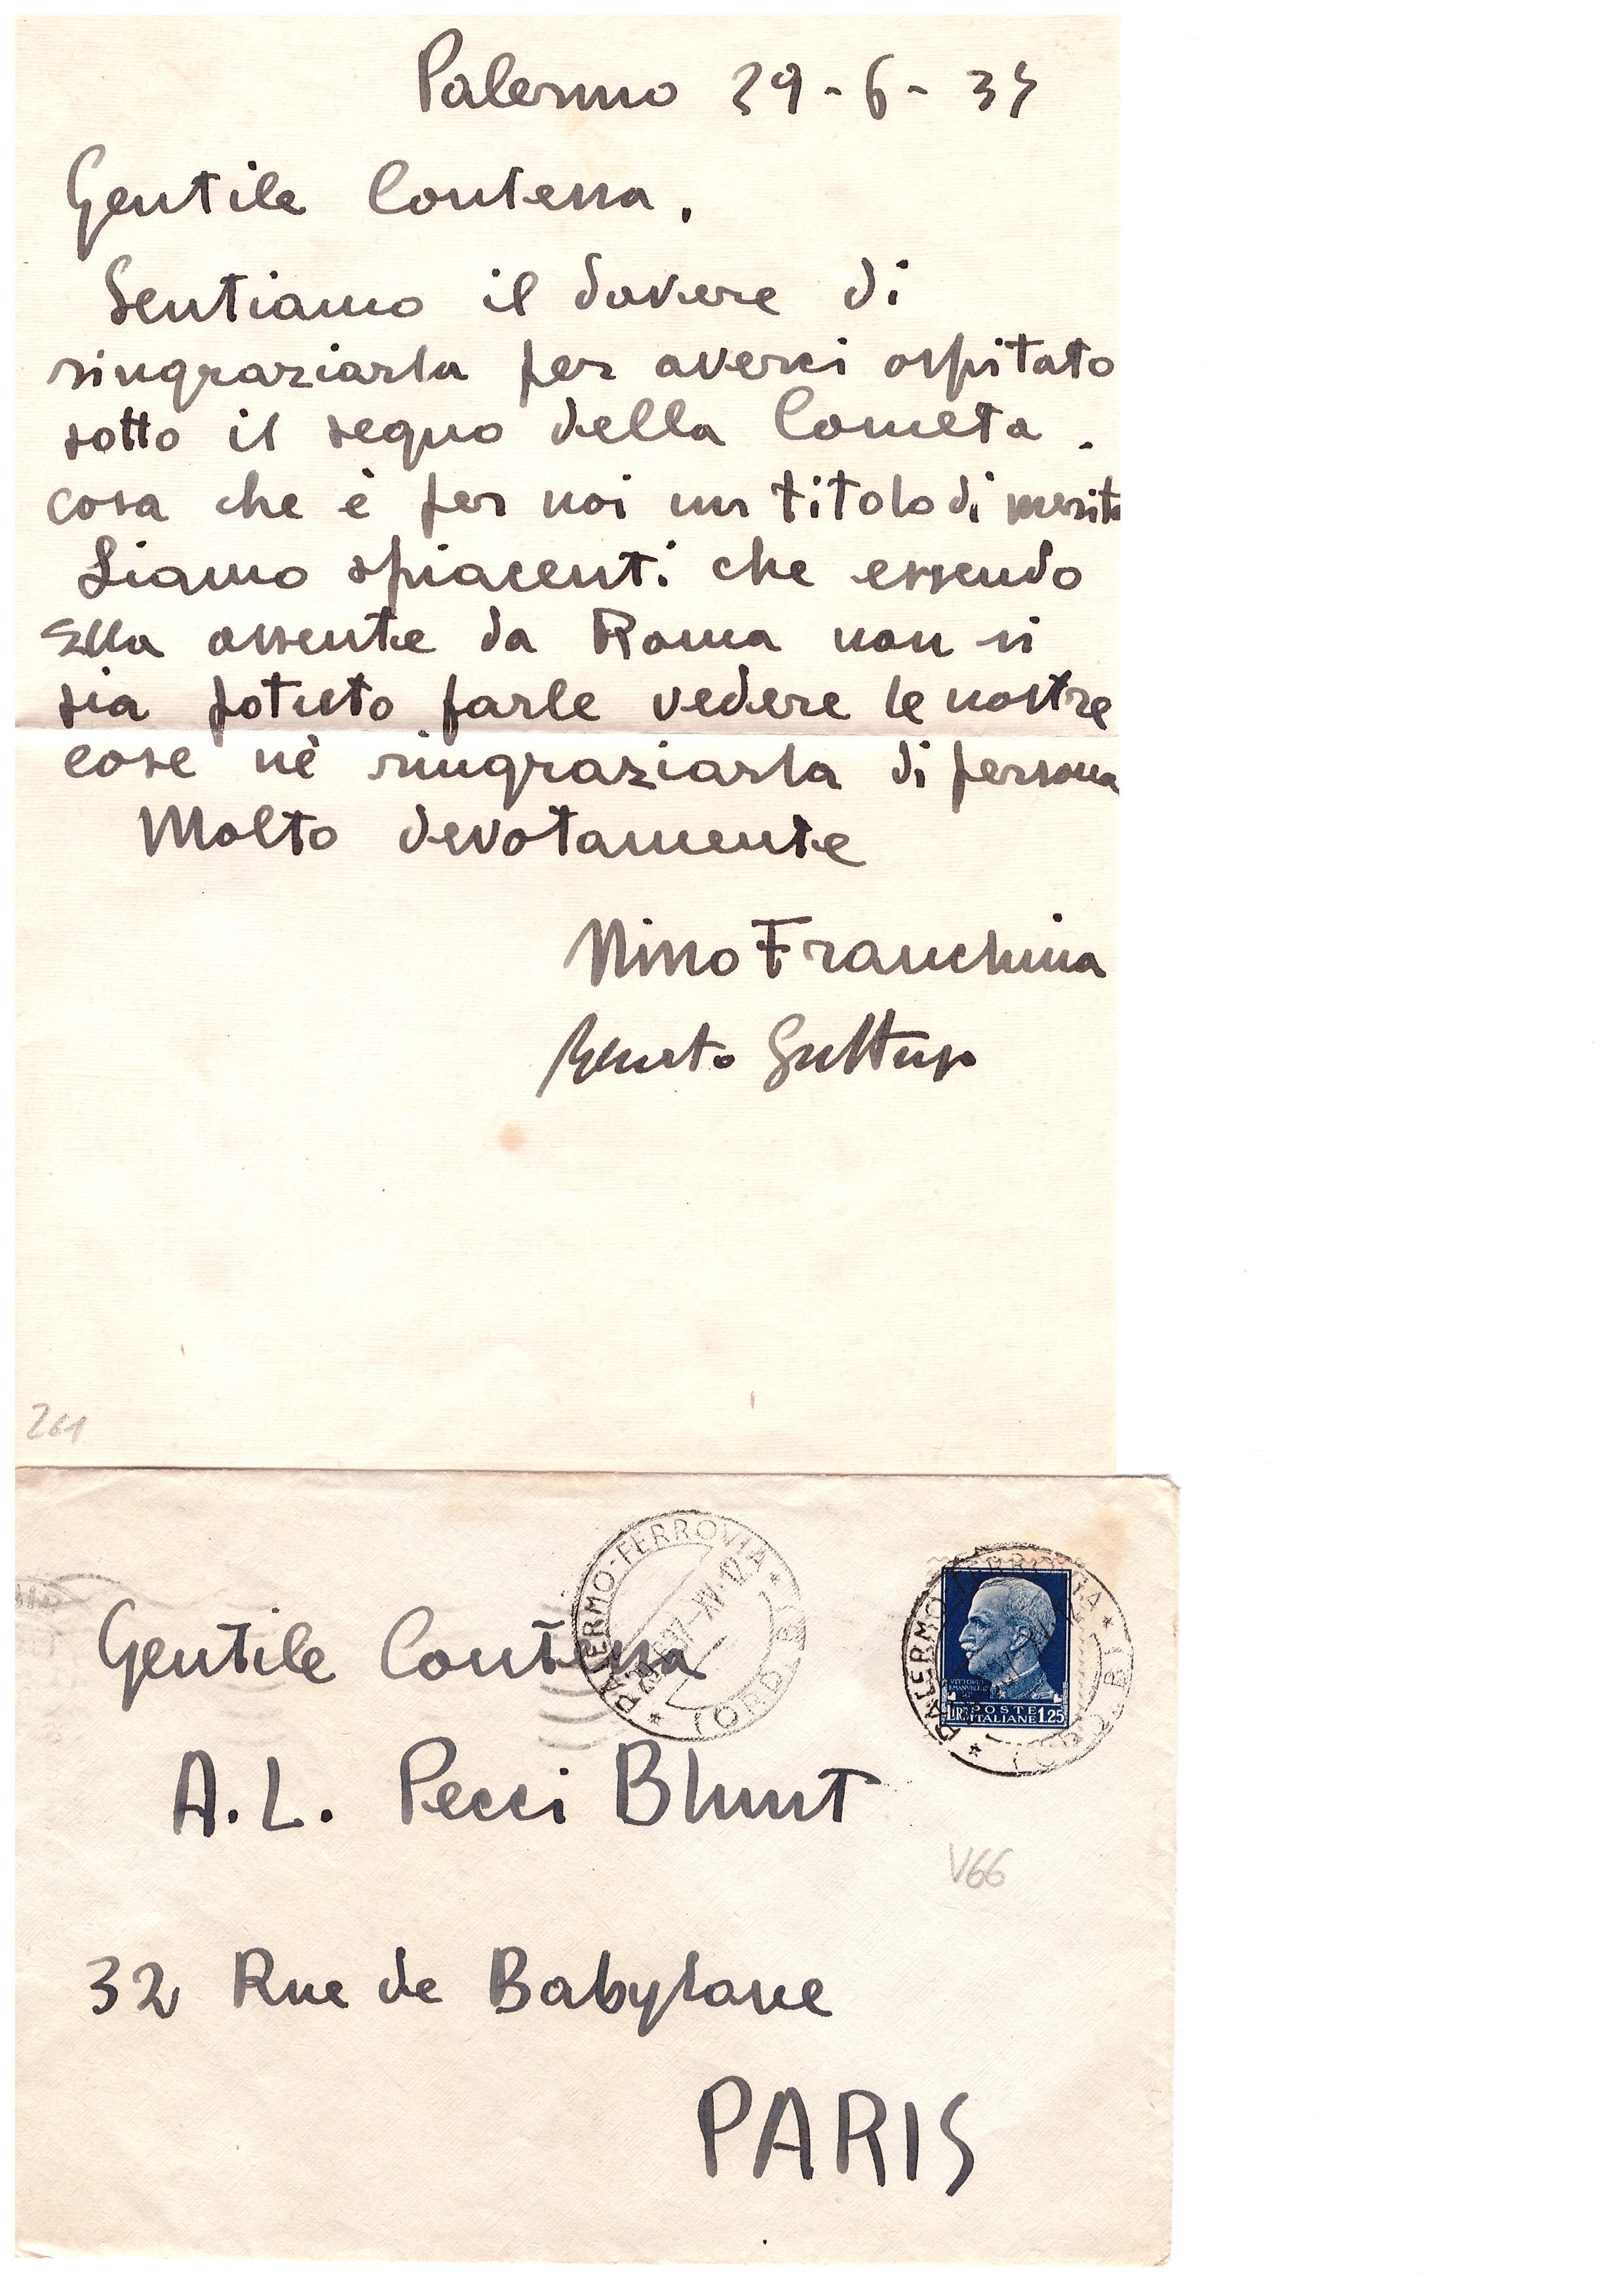 Palermo 29-6-37
Gentile Contessa,
Sentiamo il dovere di
ringraziarla per averci ospitato
sotto il segno della Cometa.
cosa che è per noi un titolo di merito
Siamo spiacenti che essendo
Ella assente da Roma non si
sia potuto farle vedere le nostre
cose nè ringraziarla di persona
Molto devotamente
Nino Franchina
Renato Guttuso
261
PALERMO-FERROVIA
37-XV-12
(ORD. B)
PALERMO FERROVIA
VITTORIO
EMANUELE
POSTE
LIRE ITALIANE 1.25
Gentile Contessa
A.L. Pecci Blunt
V66
32 Rue de Babylone
PARIS